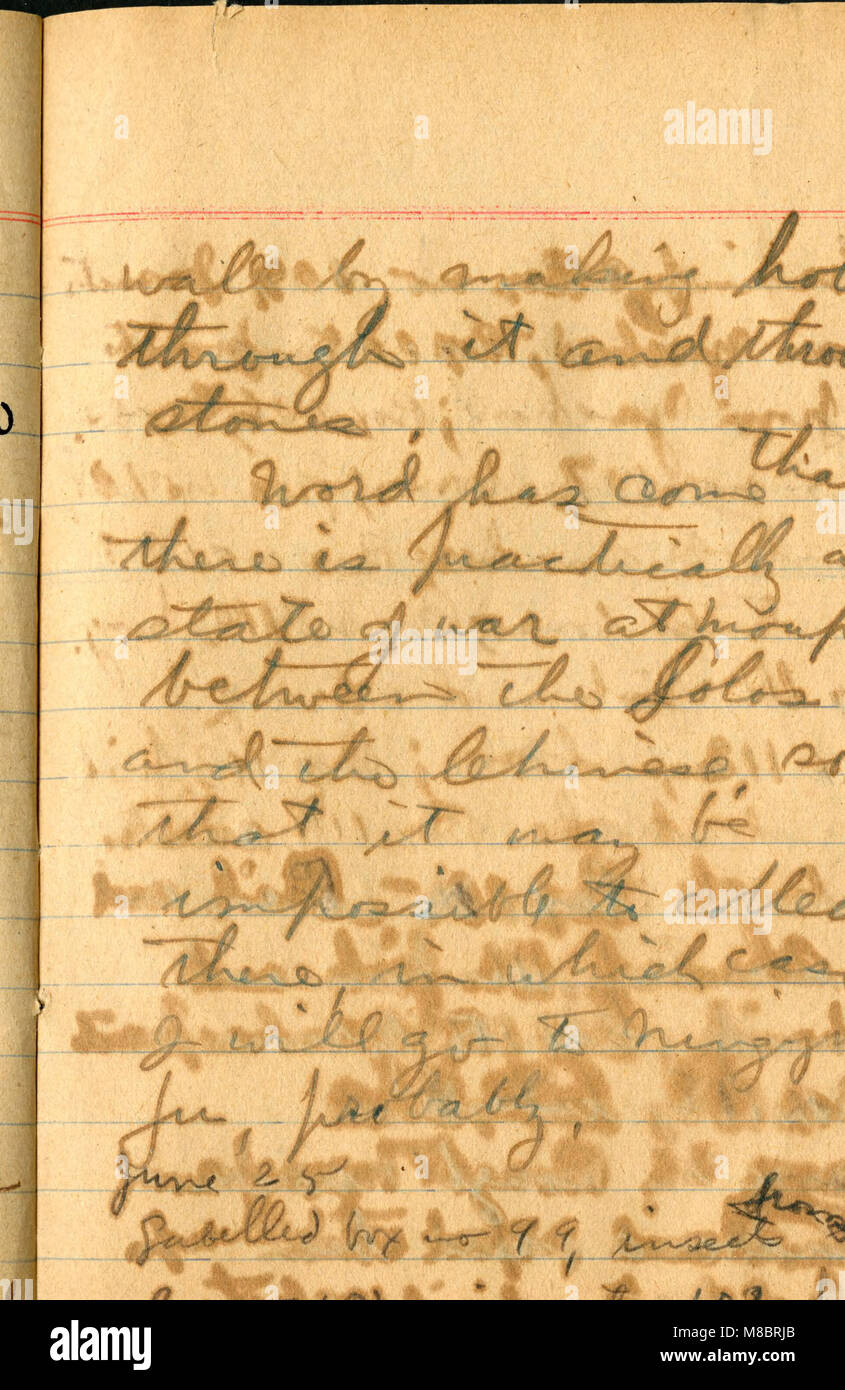 wall by making hol
through it and throu
stones.
Word has come tha
there is practically a
state of war at moup
between the Lolos
and the Chinese, so
that it may be
impossible to collec
there, in which cas
I will go to Ningy
fu, probably.
June 25
Labelled box no 99, insects from
alamy
Image ID: M8BRJB
www.alamy.com